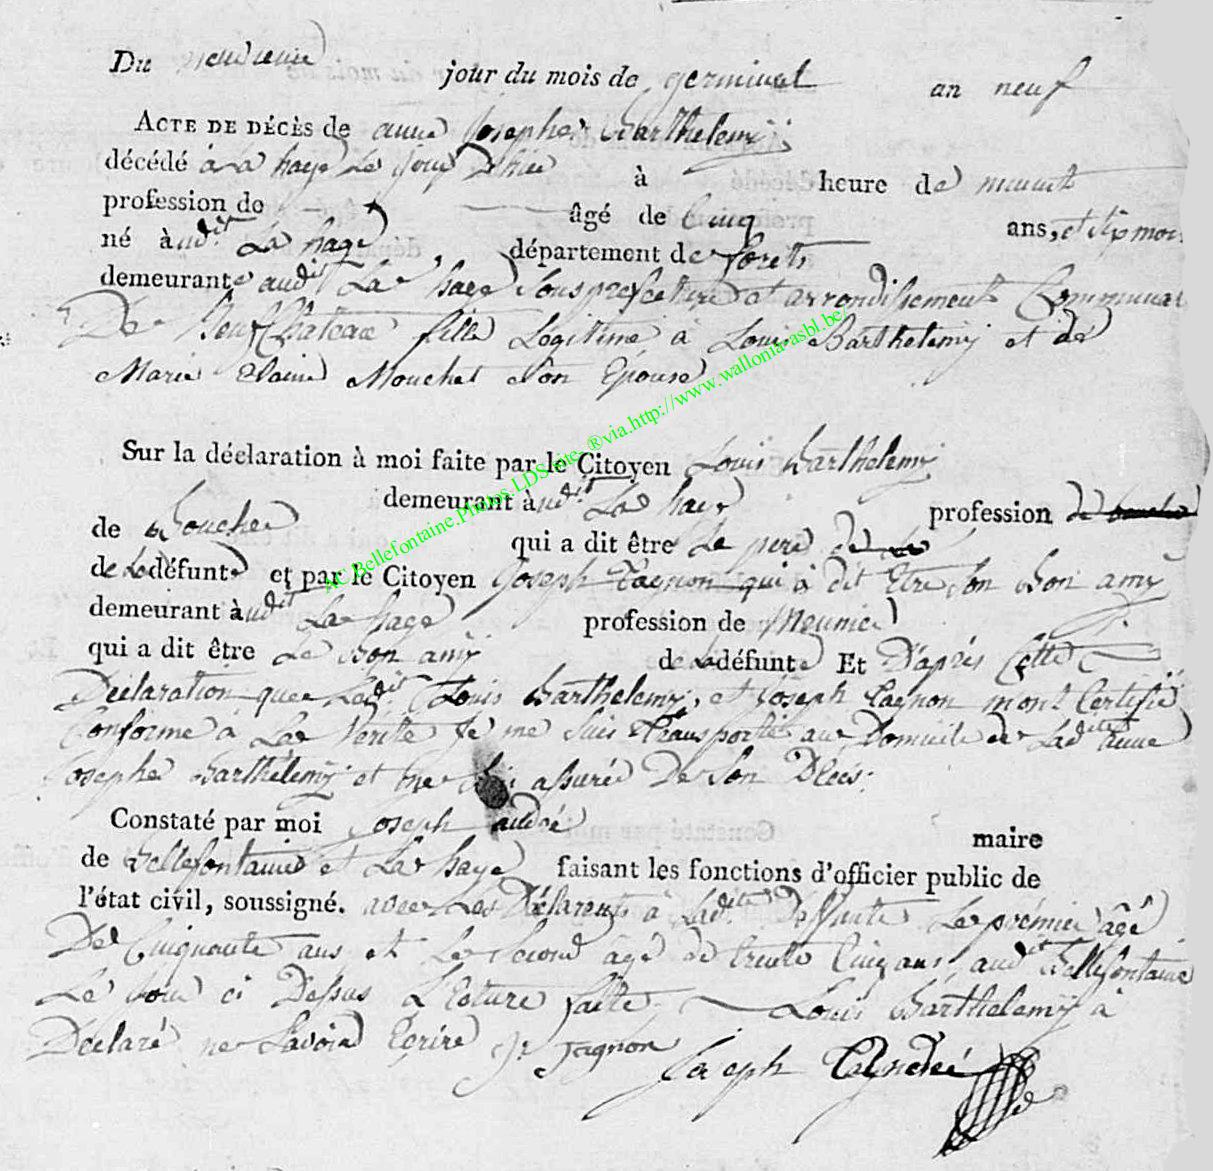 Du jour du mois de germinal an neuf
ACTE DE DÉCÈS de anne josephe Barthelemÿ
décédé à La haye Le jour D'hier à heure de minuit
profession de âgé de Cinq ans, et six mois
né à udit La haye département de forets
demeurante audit La haye Sousprefecture et arrondissement Communal
De Neufchateau fille Légitime à Louis Barthelemy et de
Marie Mouchet Son Epouse
Sur la déclaration à moi faite par le Citoyen Louis Barthelemy
demeurant à udit La haye profession de
de Boucher qui a dit être Le pere de
de La défunte et par le Citoyen Joseph Tagnon qui à dit Etre Son Bon amÿ
demeurant à udit La haye profession de Meunier
qui a dit être Le Bon amÿ de La défunte Et D'après Cette
Déclaration que Ledit Louis Barthelemy, et Joseph Tagnon mont Certifié
Conforme a La Vérité Je me Suis Transporté au Domicile de Ladite anne
Josephe Barthélemÿ et me Suis assuré De Son Déces.
Constaté par moi Joseph andré maire
de Bellefontaine et La haye faisant les fonctions d'officier public de
l'état civil, soussigné. avec Les Déclarents à Ladite Deffunte Le premier âgé
De Cinquante ans et Le Second âgé de trente Cinq ans, audit Bellefontaine
Le Jour ci Dessus Lecture faite. Louis Barthelemÿ à
Déclaré ne Savoir Ecrire Jh Tagnon Joseph André
AC.Bellefontaine.Photos.LDS.site-®via.http://www.wallonia-asbl.be/